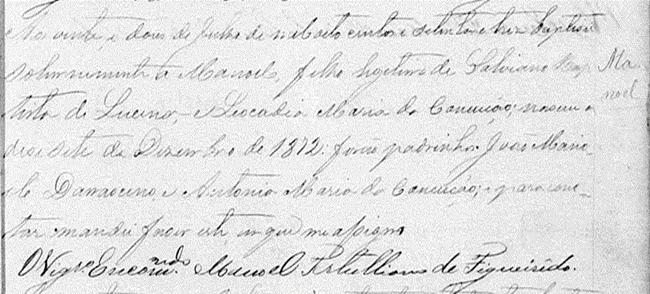 Ao vinte e dous de Julho de mil oito centos e setenta e tres baptisei
solemnemente a Manoel, filho legitimo de Salviano Bap-
tista de Lucena, e Leocadia Maria da Conceição; nasceu a
desesete de Dezembro de 1872: forão padrinhos João Mano-
el Damasceno, e Antonia Maria da Conceição; e para cons-
tar mandei fazer este em que me assigno
O Vigr.º Encom.do Manoel Tertulliano de Figueirêdo.
Ma
noel